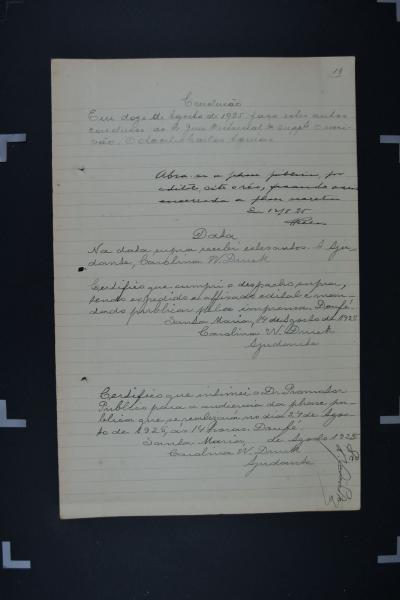 19
Conclusão
Em doze de Agosto de 1925 faço estes autos
conclusos ao
vão. O
Abra-se a phase publica, por
edital, cite o réo, ficando assim
encerrada a phase secreta
Em 12/8/25
Data
Na data supra recebi estes autos. O Aju-
dante, Carolina W. Druck
Certifico que cumpri o despacho supra,
tendo expedido e affixado edital e man-
dado publicar pela imprensa. Doufé.
Santa Maria, 14 de Agosto de 1925
Carolina W. Druck
Ajudante
Certifico que intimei o Dr. Promotor
Publico para a audiencia da phase pu-
blica que se realizará no dia 27 de Agos-
to de 1925, ás 14 horas. Doufé.
Santa Maria, de Agosto 1925
Carolina W. Druck
Ajudante